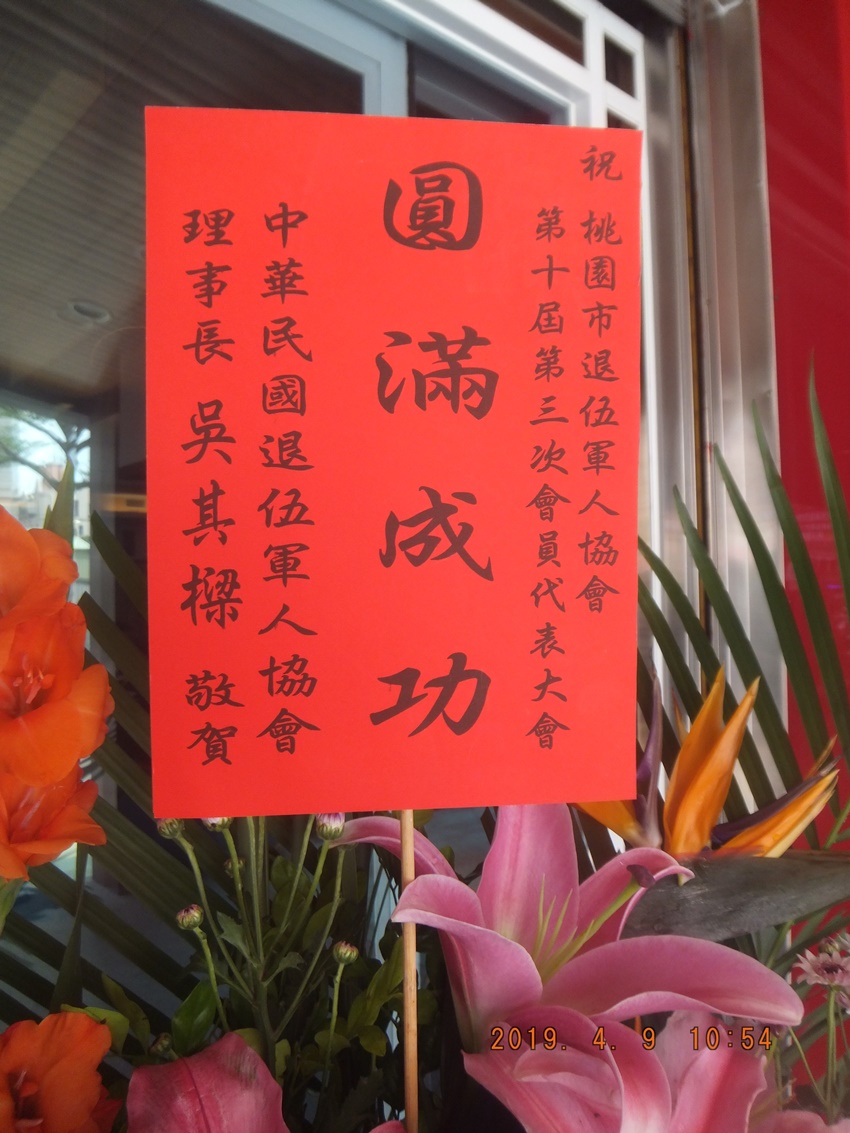 祝 桃園市退伍軍人協會
第十屆第三次會員代表大會
圓滿成功
中華民國退伍軍人協會
理事長 吳其樑 敬賀
2019. 4. 9 10:54